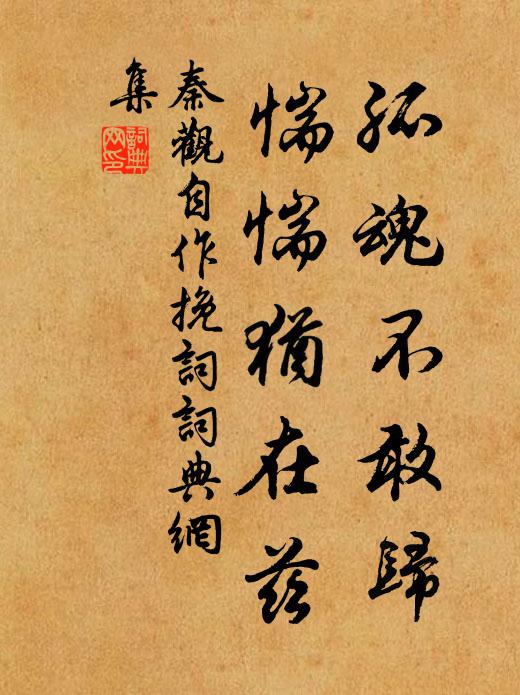 孤魂不敢歸
惴惴猶在茲
秦觀自作挽詞詞典網
集
詞典
网印